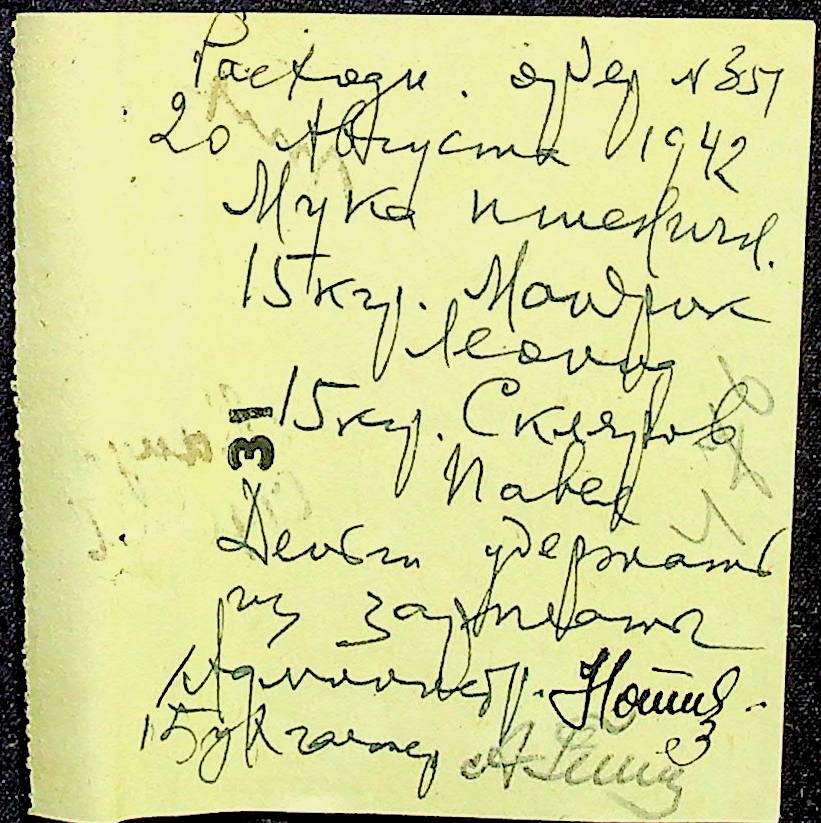 Расходн. ордер N 351
20 Августа 1942
Мука пшеничн.
15 кгр.
Леонид
15 кгр. Скляров
Павел
31
Деньги удержать
из зарплаты
Администр.
Бухгалтер